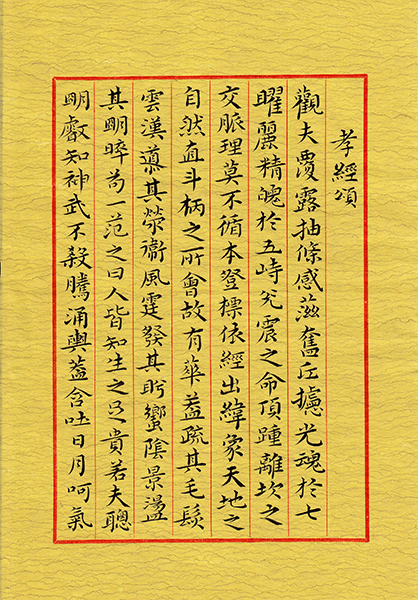 孝經頌
觀夫覆露抽條感滋奮丘攄光魂於七
曜麗精魄於五峙兊震之命頂踵離坎之
交脈理莫不循本登標依經出緯象天地之
自然直斗柄之所會故有華蓋疏其毛髮
雲漢其滎衞風霆發其肹蠁陰景盪
其明晬一范之曰人皆知生之貴若夫聰
明叡知神武不殺騰涌輿蓋含吐日月呵氣